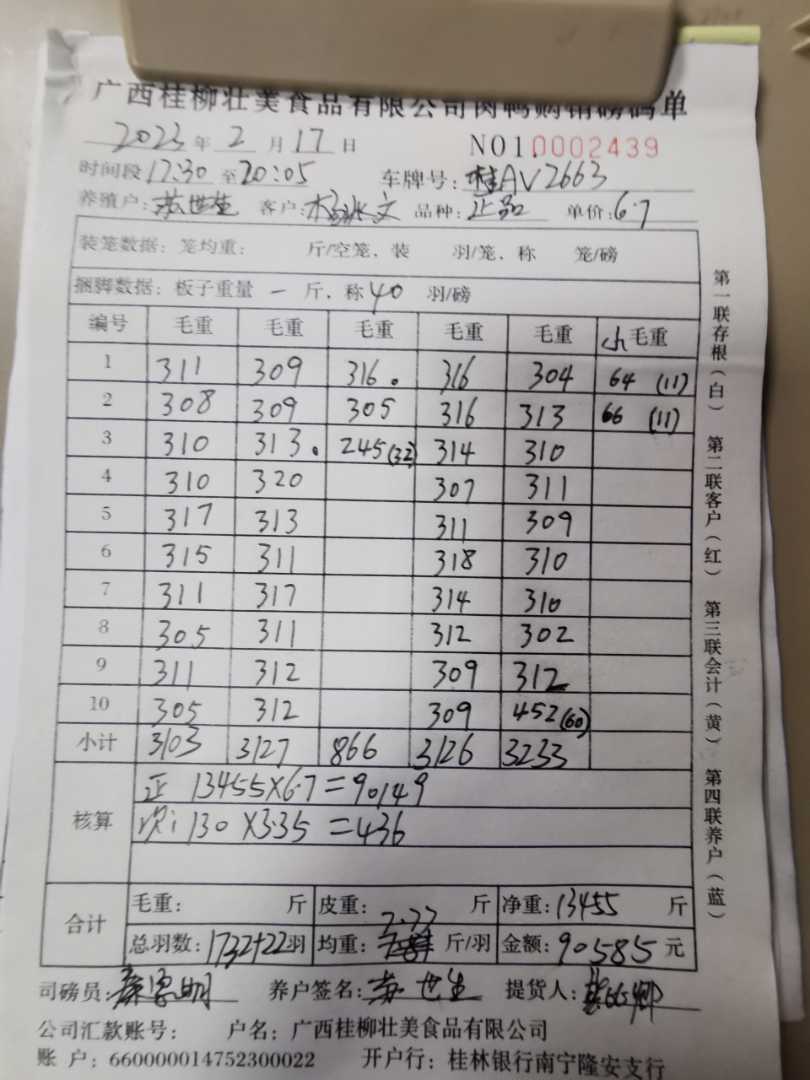 广西桂柳壮美食品有限公司肉鸭购销磅码单
2023年2月17日 NO1.0002439
时间段17:30至20:05 车牌号:桂AV2663
养殖户: 世生 客户: 文 品种:正品 单价:6.7
装笼数据:笼均重: 斤/空笼、装 羽/笼、称 笼/磅
捆脚数据:板子重量 一 斤,称40 羽/磅
编号 毛重 毛重 毛重 毛重 毛重 小毛重
1 311 309 316. 316 304 64 (11)
2 308 309 305 316 313 66 (11)
3 310 313. 245(32) 314 310
4 310 320 307 311
5 317 313 311 309
6 315 311 318 310
7 311 317 314 310
8 305 311 312 302
9 311 312 309 312
10 305 312 309 452(60)
小计 3103 3127 866 3126 3233
核算 正 13455X6.7=90149
次: 130 X3.35 =436
合计 毛重: 斤 皮重: 斤 净重:13455 斤
总羽数:1732+22羽 均重:7.77 斤/羽 金额:90585元
司磅员: 明 养户签名: 世生 提货人:
公司汇款账号: 户名:广西桂柳壮美食品有限公司
账 户:660000014752300022 开户行:桂林银行南宁隆安支行
第一联存根(白) 第二联客户(红) 第三联会计(黄) 第四联养户(蓝)